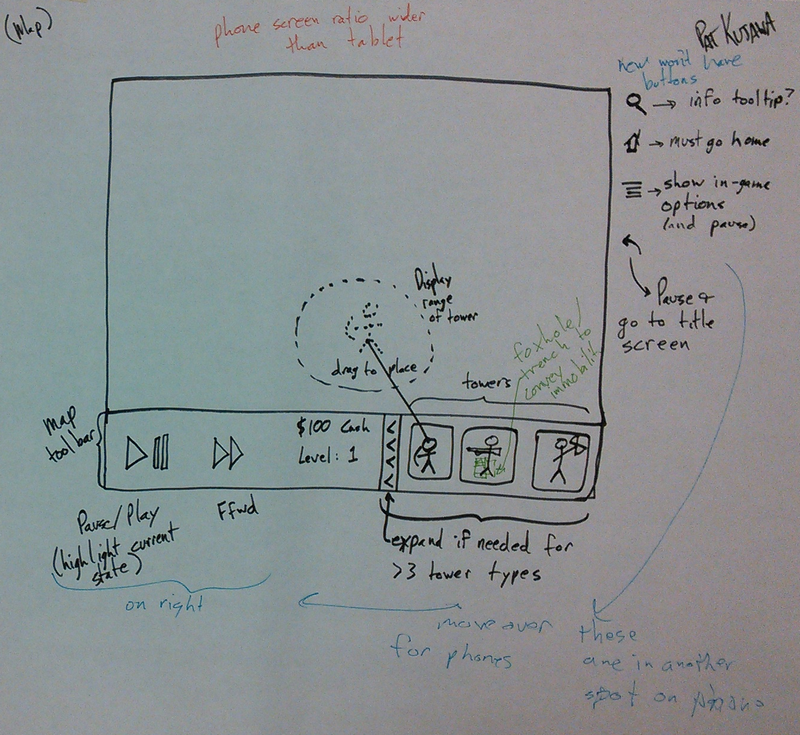 (Map)
phone screen ratio wider
than tablet
PAT KUJAWA
new won't have
buttons
→ info tooltip?
→ must go home
→ show in-game
options
(and pause)
Pause &
go to title
screen
Display
range
of tower
drag to place
foxhole/
trench to
convey
immobility
towers
map
toolbar
$100 Cash
Level: 1
<
<
<
<
Pause/Play
(highlight current
state)
Ffwd
expand if needed for
>3 tower types
on right
move over
for phones
these
are in another
spot on phone